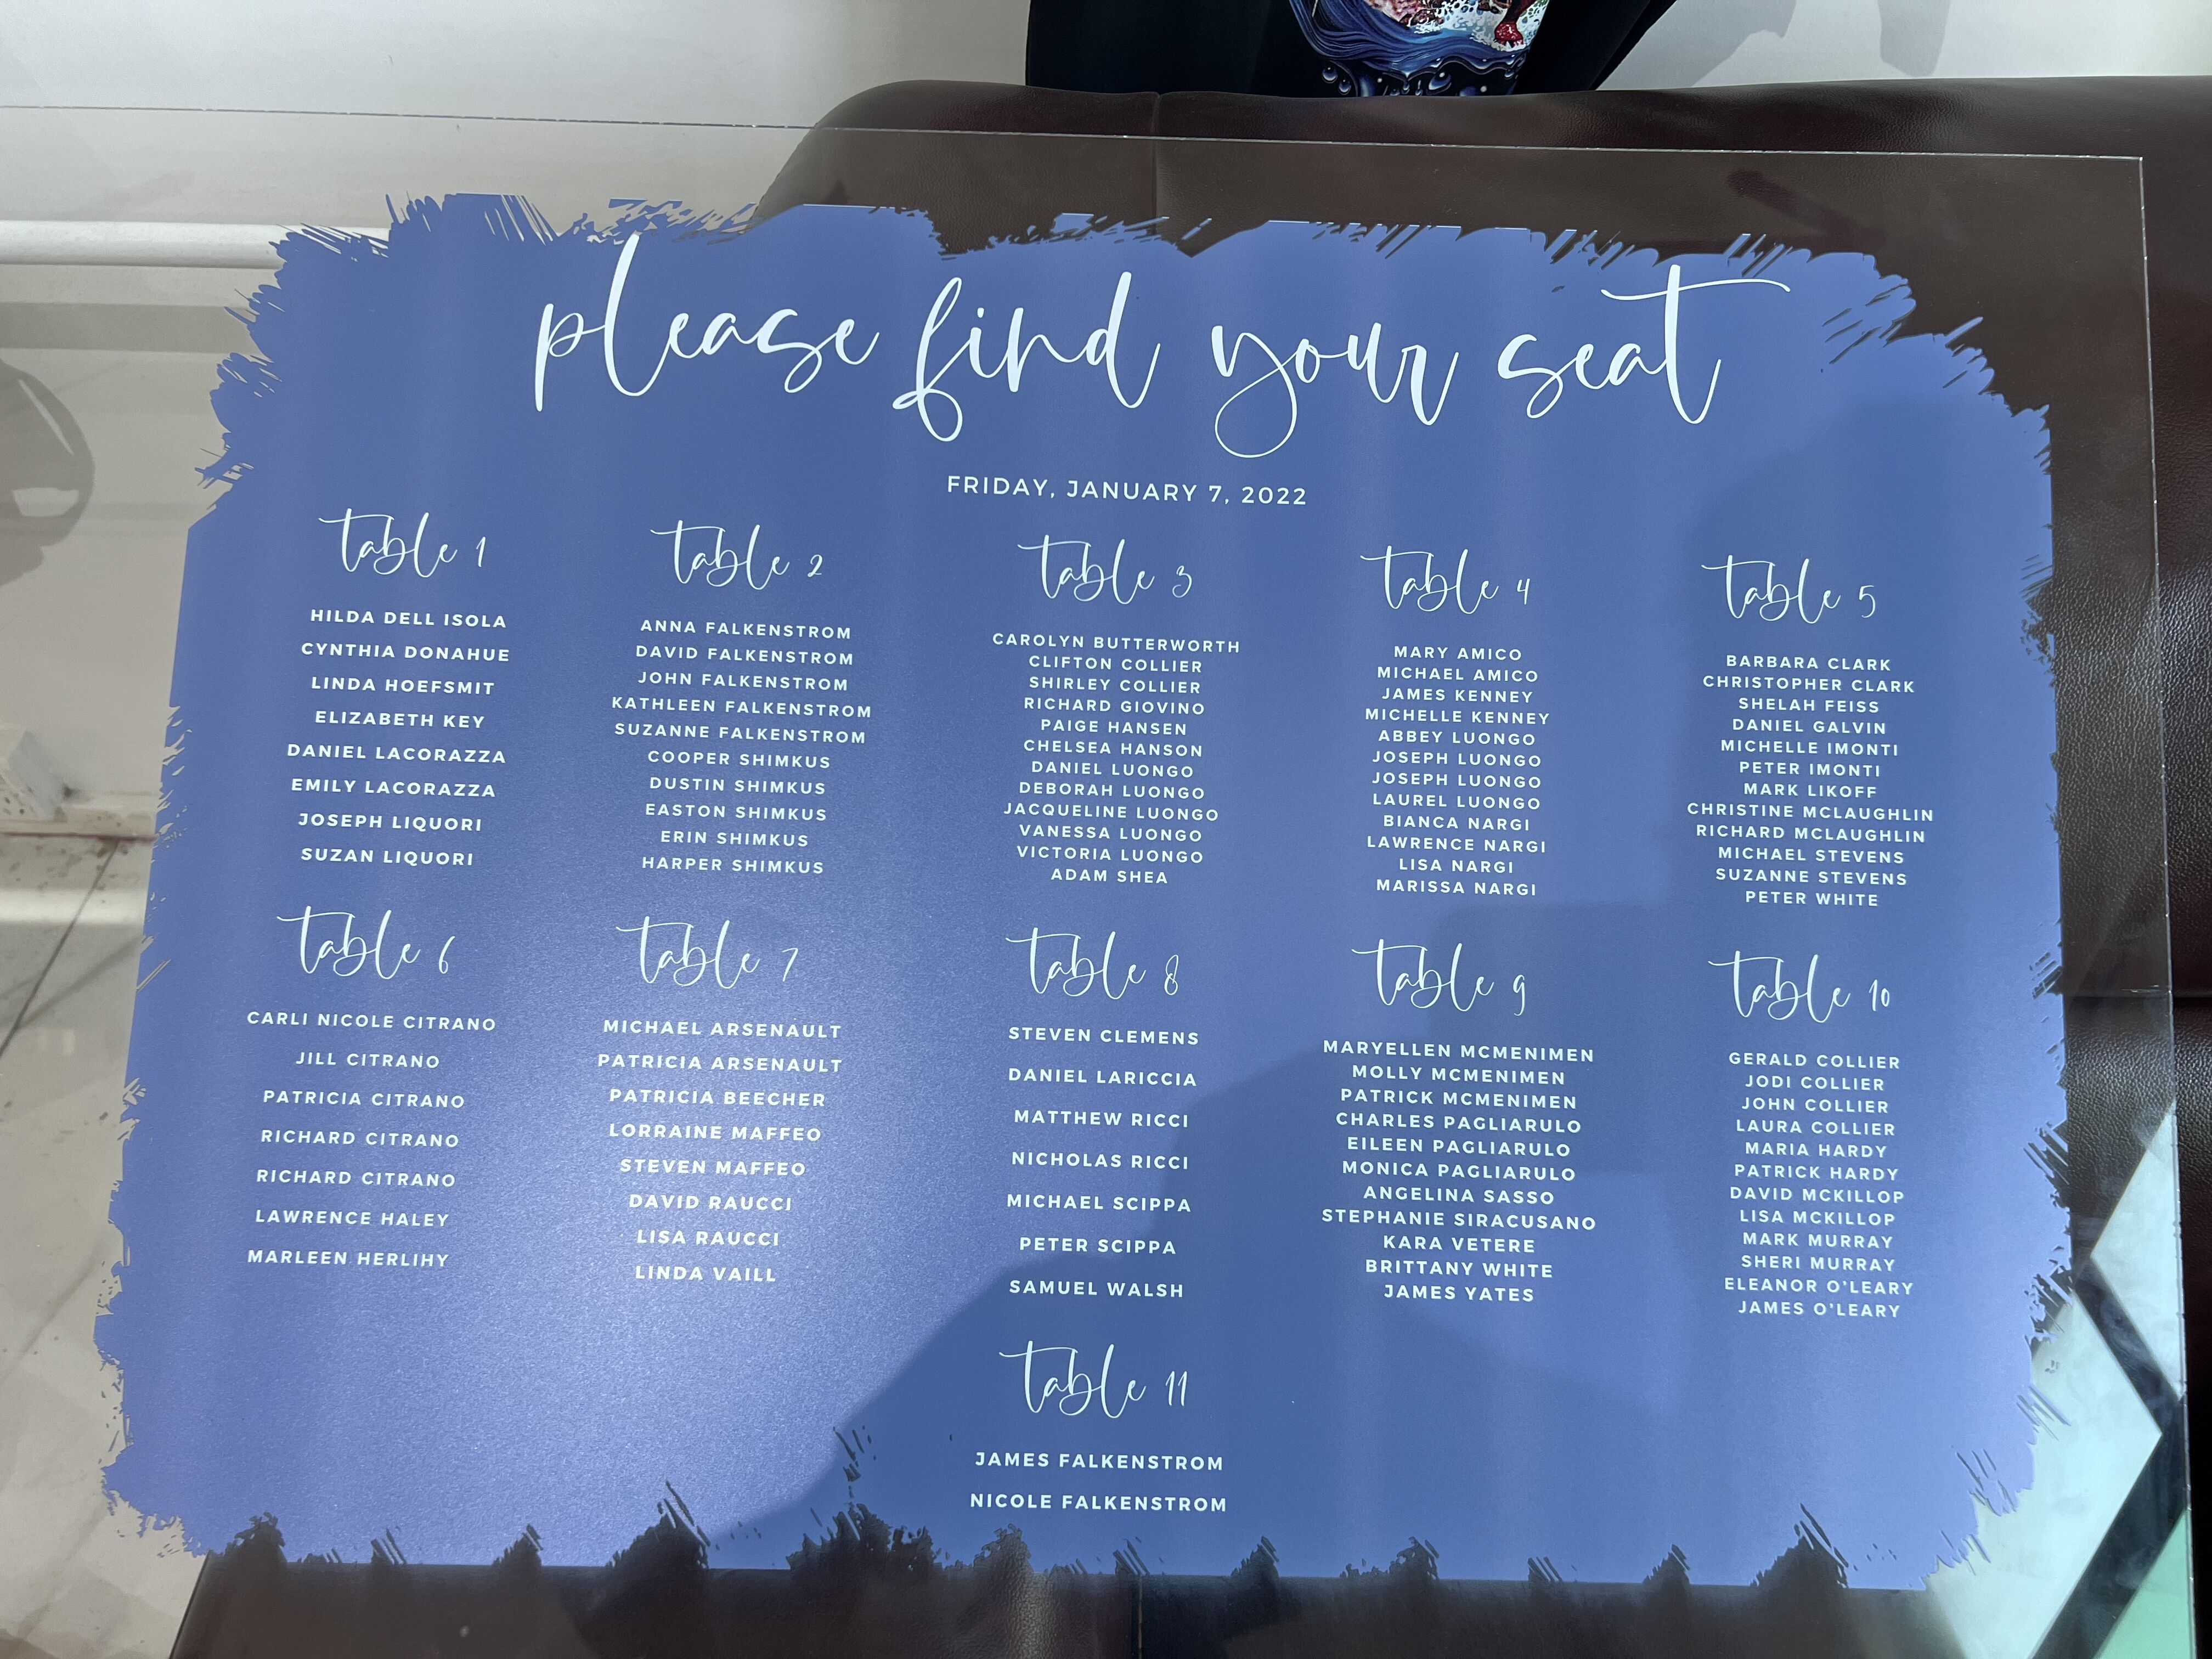 please find your seat
FRIDAY, JANUARY 7, 2022
table 1
HILDA DELL ISOLA
CYNTHIA DONAHUE
LINDA HOEFSMIT
ELIZABETH KEY
DANIEL LACORAZZA
EMILY LACORAZZA
JOSEPH LIQUORI
SUZAN LIQUORI
table 2
ANNA FALKENSTROM
DAVID FALKENSTROM
JOHN FALKENSTROM
KATHLEEN FALKENSTROM
SUZANNE FALKENSTROM
COOPER SHIMKUS
DUSTIN SHIMKUS
EASTON SHIMKUS
ERIN SHIMKUS
HARPER SHIMKUS
table 3
CAROLYN BUTTERWORTH
CLIFTON COLLIER
SHIRLEY COLLIER
RICHARD GIOVINO
PAIGE HANSEN
CHELSEA HANSON
DANIEL LUONGO
DEBORAH LUONGO
JACQUELINE LUONGO
VANESSA LUONGO
VICTORIA LUONGO
ADAM SHEA
table 4
MARY AMICO
MICHAEL AMICO
JAMES KENNEY
MICHELLE KENNEY
ABBEY LUONGO
JOSEPH LUONGO
JOSEPH LUONGO
LAUREL LUONGO
BIANCA NARGI
LAWRENCE NARGI
LISA NARGI
MARISSA NARGI
table 5
BARBARA CLARK
CHRISTOPHER CLARK
SHELAH FEISS
DANIEL GALVIN
MICHELLE IMONTI
PETER IMONTI
MARK LIKOFF
CHRISTINE MCLAUGHLIN
RICHARD MCLAUGHLIN
MICHAEL STEVENS
SUZANNE STEVENS
PETER WHITE
table 6
CARLI NICOLE CITRANO
JILL CITRANO
PATRICIA CITRANO
RICHARD CITRANO
RICHARD CITRANO
LAWRENCE HALEY
MARLEEN HERLIHY
table 7
MICHAEL ARSENAULT
PATRICIA ARSENAULT
PATRICIA BEECHER
LORRAINE MAFFEO
STEVEN MAFFEO
DAVID RAUCCI
LISA RAUCCI
LINDA VAILL
table 8
STEVEN CLEMENS
DANIEL LARICCIA
MATTHEW RICCI
NICHOLAS RICCI
MICHAEL SCIPPA
PETER SCIPPA
SAMUEL WALSH
table 9
MARYELLEN MCMENIMEN
MOLLY MCMENIMEN
PATRICK MCMENIMEN
CHARLES PAGLIARULO
EILEEN PAGLIARULO
MONICA PAGLIARULO
ANGELINA SASSO
STEPHANIE SIRACUSANO
KARA VETERE
BRITTANY WHITE
JAMES YATES
table 10
GERALD COLLIER
JODI COLLIER
JOHN COLLIER
LAURA COLLIER
MARIA HARDY
PATRICK HARDY
DAVID MCKILLOP
LISA MCKILLOP
MARK MURRAY
SHERI MURRAY
ELEANOR O'LEARY
JAMES O'LEARY
table 11
JAMES FALKENSTROM
NICOLE FALKENSTROM